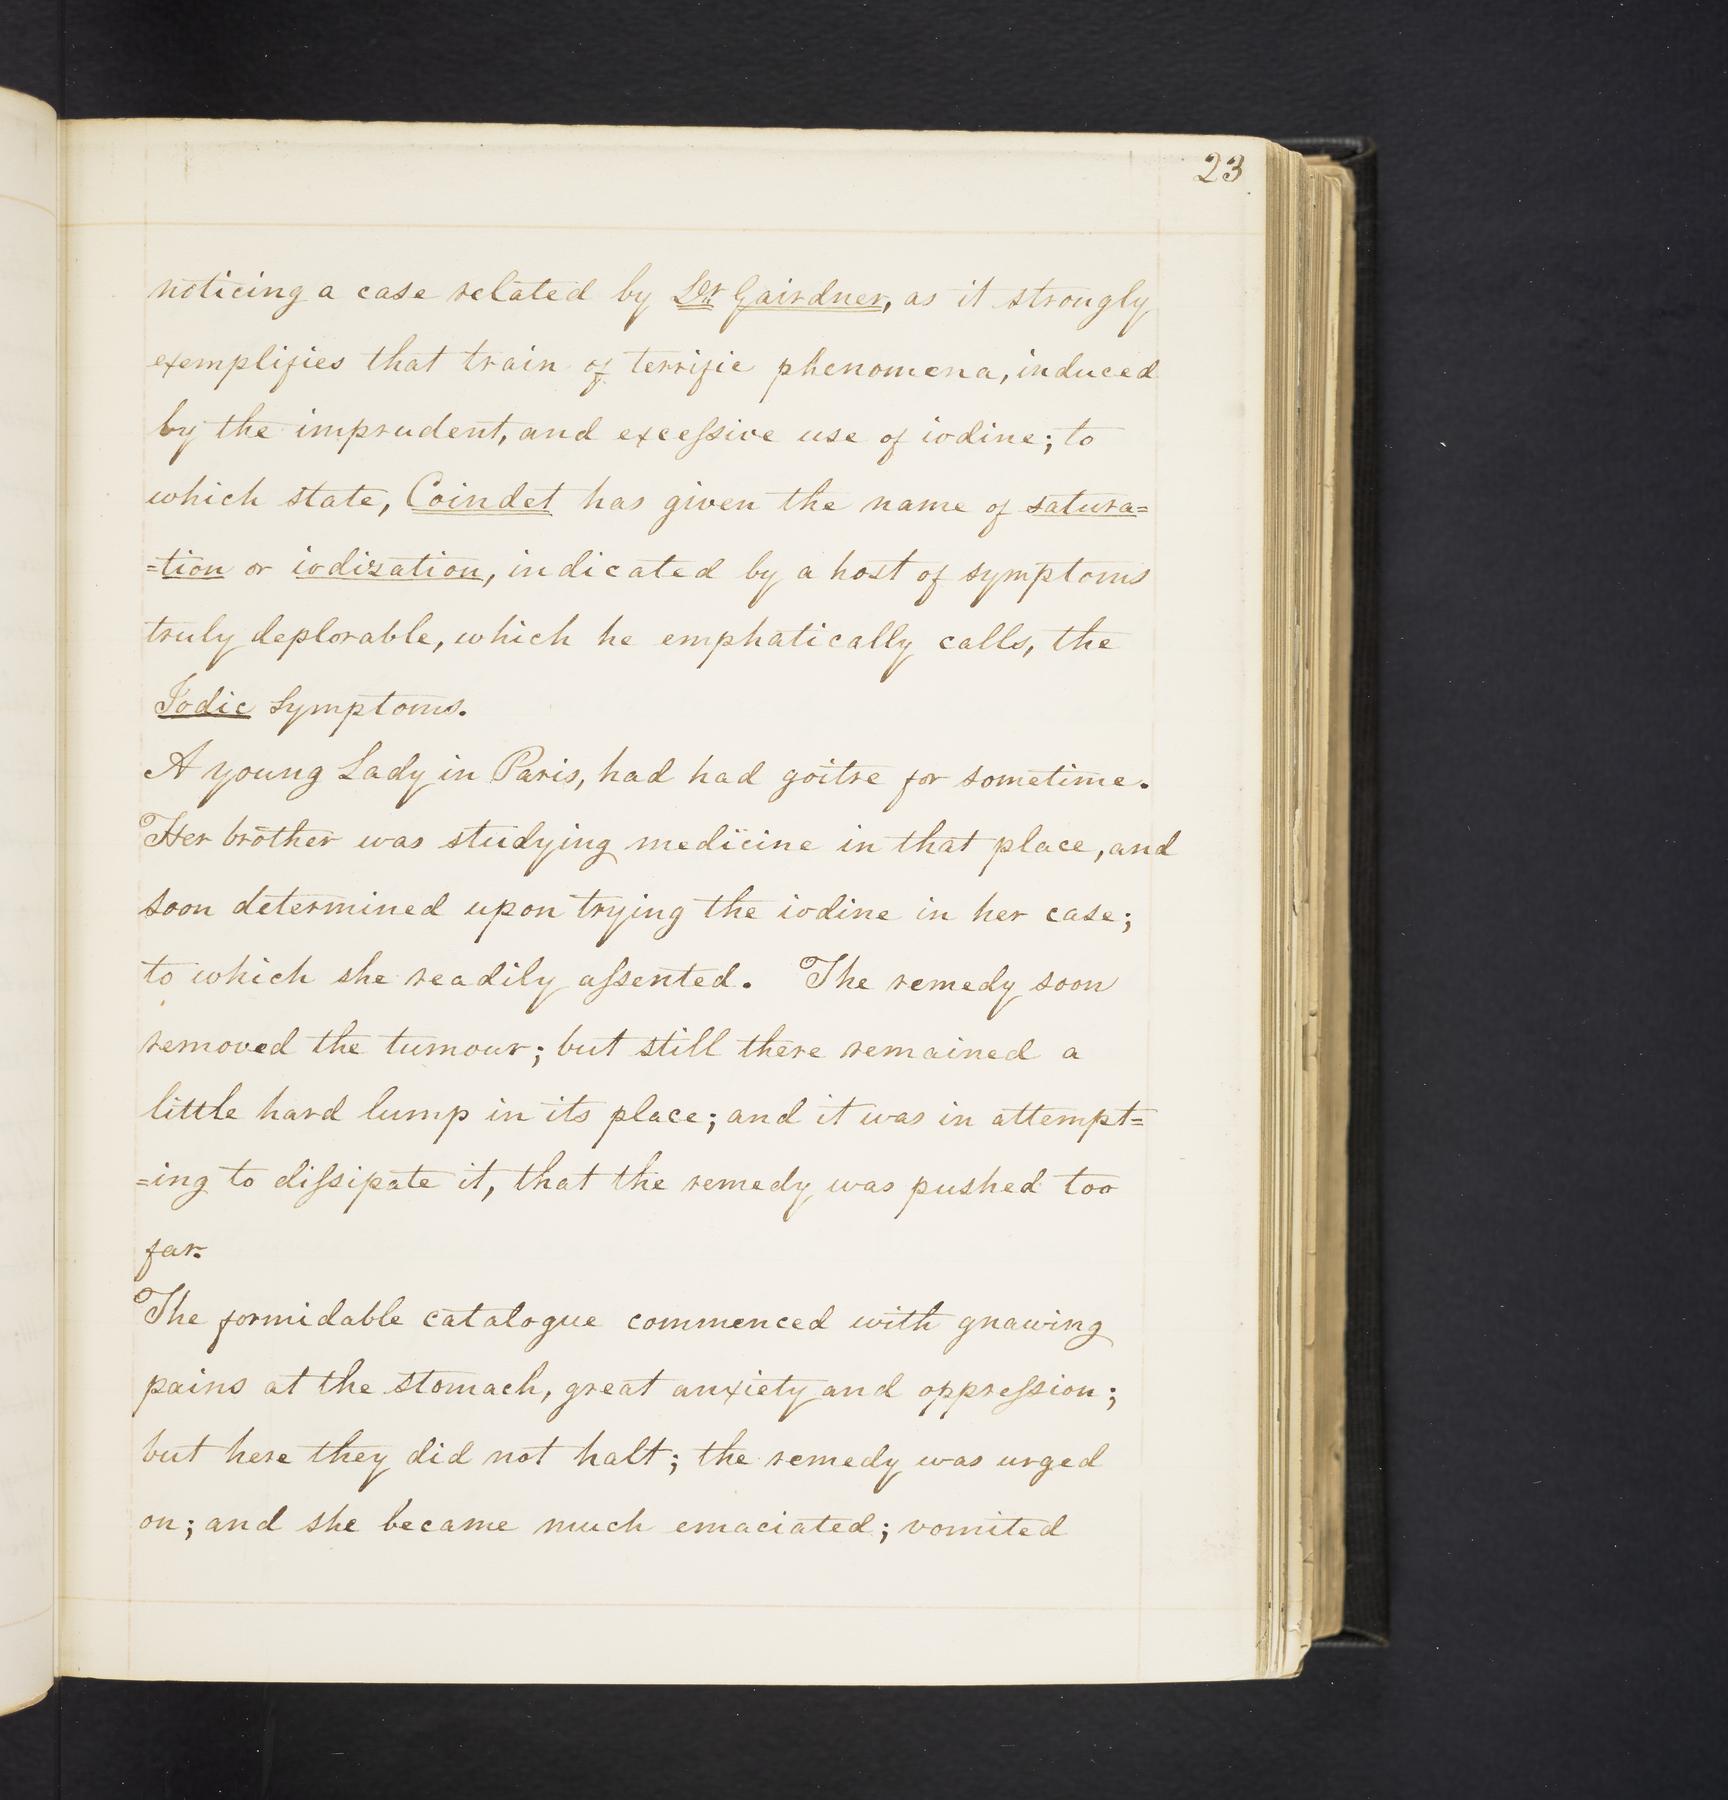 23
noticing a case related by Dr Gairdner, as it strongly
exemplifies that train of terrific phenomena, induced
by the imprudent, and exceſsive use of iodine; to
which state, Coindet has given the name of satura=
=tion or iodization, indicated by a host of symptoms
truly deplorable, which he emphatically calls, the
Iodic symptoms.
A young Lady in Paris, had had goitre for sometime.
Her brother was studying medicine in that place, and
soon determined upon trying the iodine in her case;
to which she readily aſsented. The remedy soon
removed the tumour; but still there remained a
little hard lump in its place; and it was in attempt=
=ing to diſsipate it, that the remedy was pushed too
far.
The formidable catalogue commenced with gnawing
pains at the stomach, great anxiety and oppreſsion;
but here they did not halt; the remedy was urged
on; and she became much emaciated; vomited